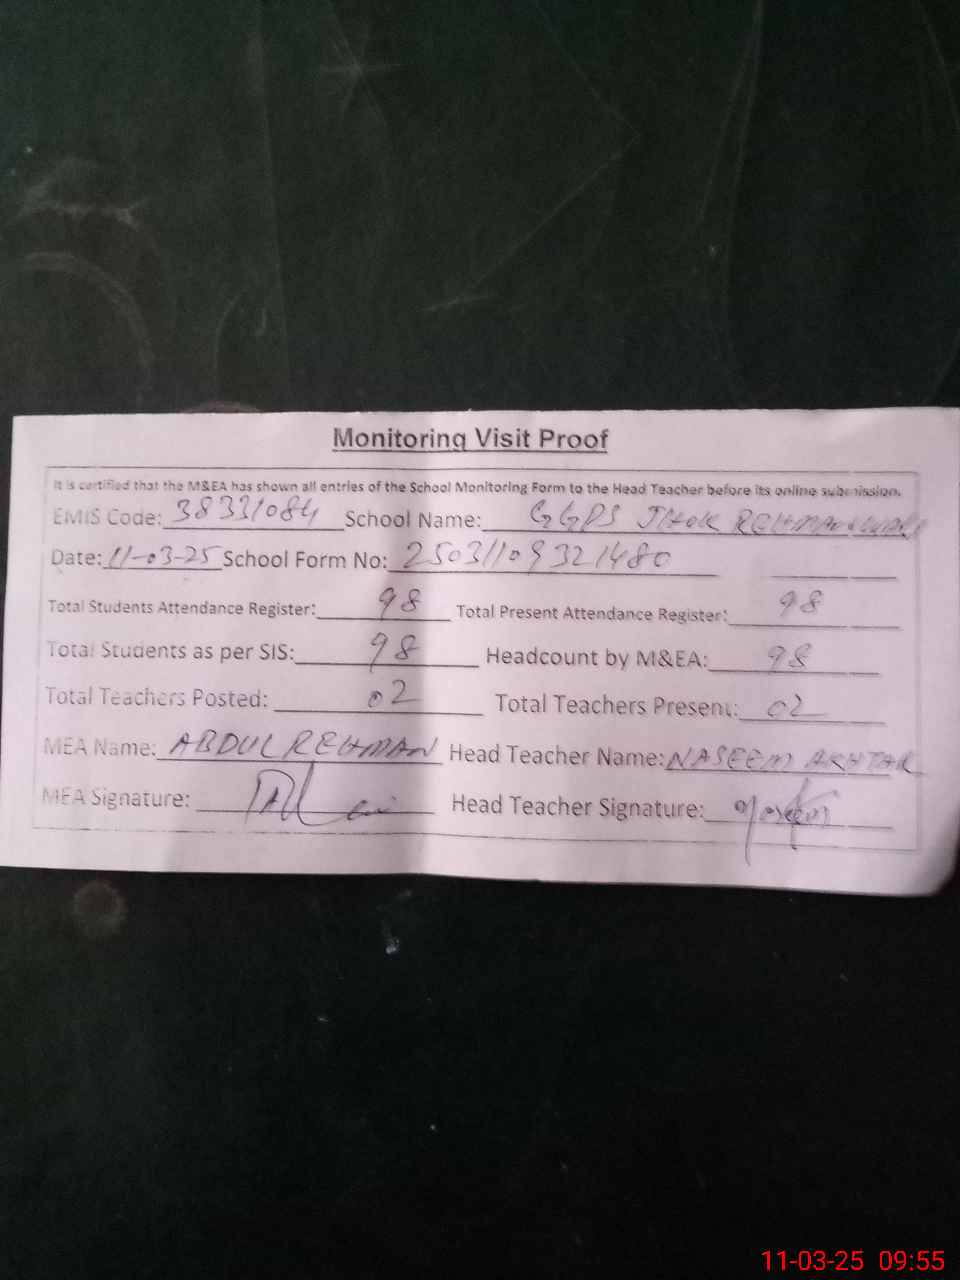 Monitoring Visit Proof
It is certified that the M&EA has shown all entries of the School Monitoring Form to the Head Teacher before its online submission.
EMIS Code: 38331084 School Name: GGPS JHOK REHMANWALI
Date: 11-03-25 School Form No: 25031109321480
Total Students Attendance Register: 98 Total Present Attendance Register: 98
Total Students as per SIS: 98 Headcount by M&EA: 98
Total Teachers Posted: 02 Total Teachers Present: 02
MEA Name: ABDUL REHMAN Head Teacher Name: NASEEM AKHTAR
MEA Signature: Head Teacher Signature:
11-03-25 09:55